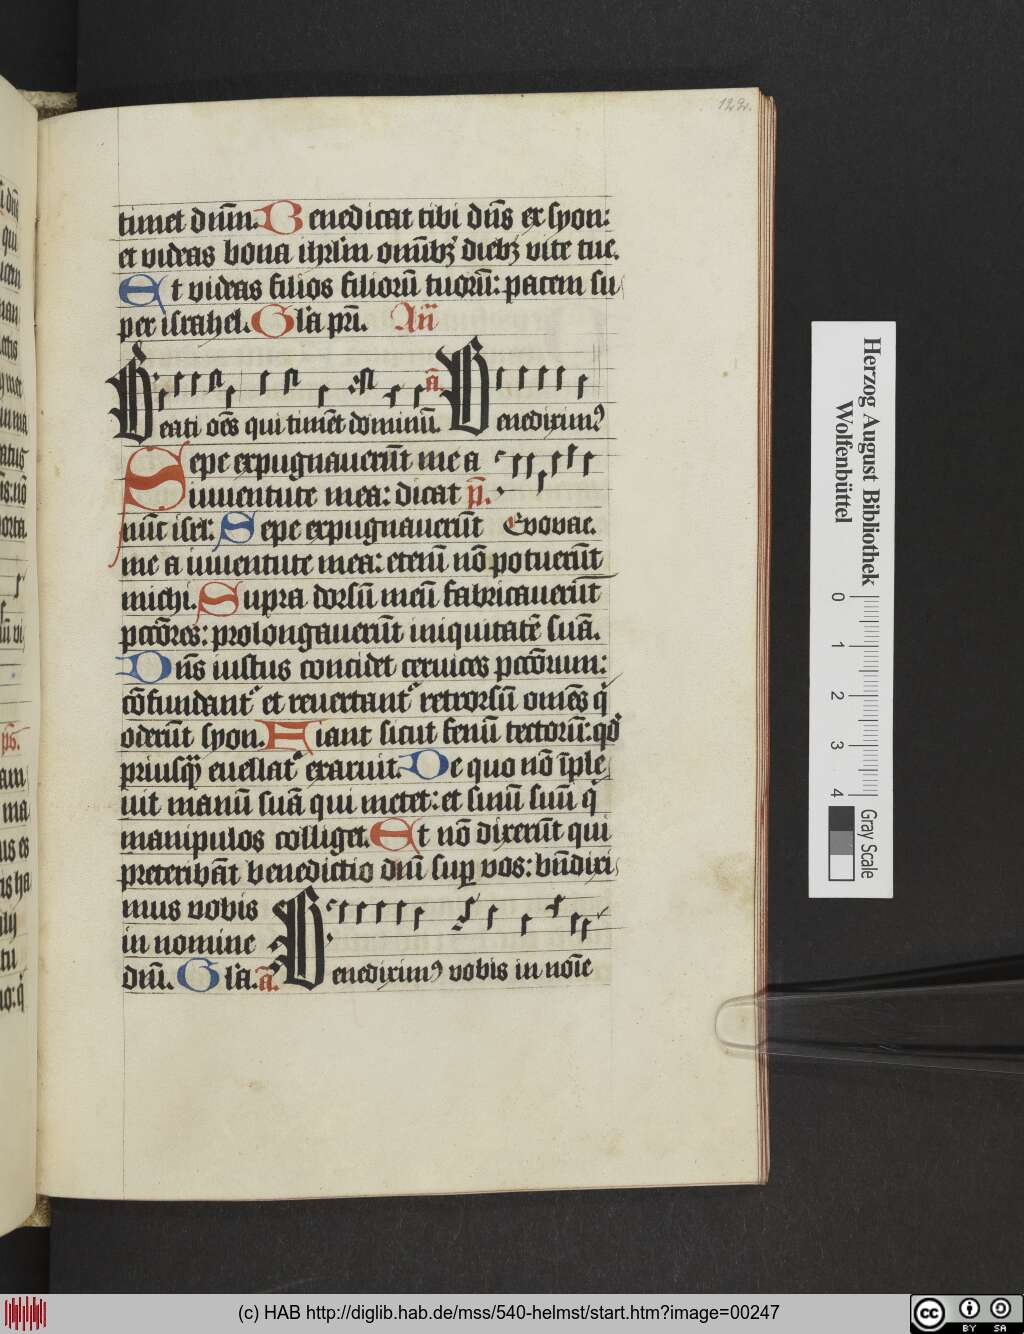 122.
timet dnm̄. Benedicat tibi dn̄s ex syon:
et videas bona ihrl̄m om̄ibꝫ diebꝫ vite tue.
Et videas filios filiorū tuorū: pacem su
per israhel. Gl̄a pr̄i. An̄
Beati oēs qui timēt dominū. a̅ Benediximꝰ
Sepe expugnauerūt me a
iuuentute mea: dicat
nūc isrl̄: Sepe expugnauerūt Evovae.
me a iuuentute mea: etenī nō potuerūt
michi. Supra dorsū meū fabricauerūt
pctōres: prolongauerūt iniquitatē suā.
Dn̄s iustus concidet ceruices pctōrum:
cōfundant᷑ et reuertant᷑ retrorsū omēs q̇
oderūt syon. Fiant sicut fenū tectorū: qd̄
priusq̄ euellat᷑ exaruit. De quo nō īple
uit manū suā qui metet: et sinū suū q̇
manipulos colliget. Et nō dixerūt qui
preteribāt benedictio dn̄i suꝑ vos: bn̄dixi
mus vobis
in nomine
dn̄i. Gl̄a. a̅ Benediximꝰ vobis in noīe
Herzog August Bibliothek
Wolfenbüttel
0 1 2 3 4
Gray Scale
(c) HAB http://diglib.hab.de/mss/540-helmst/start.htm?image=00247
cc BY SA